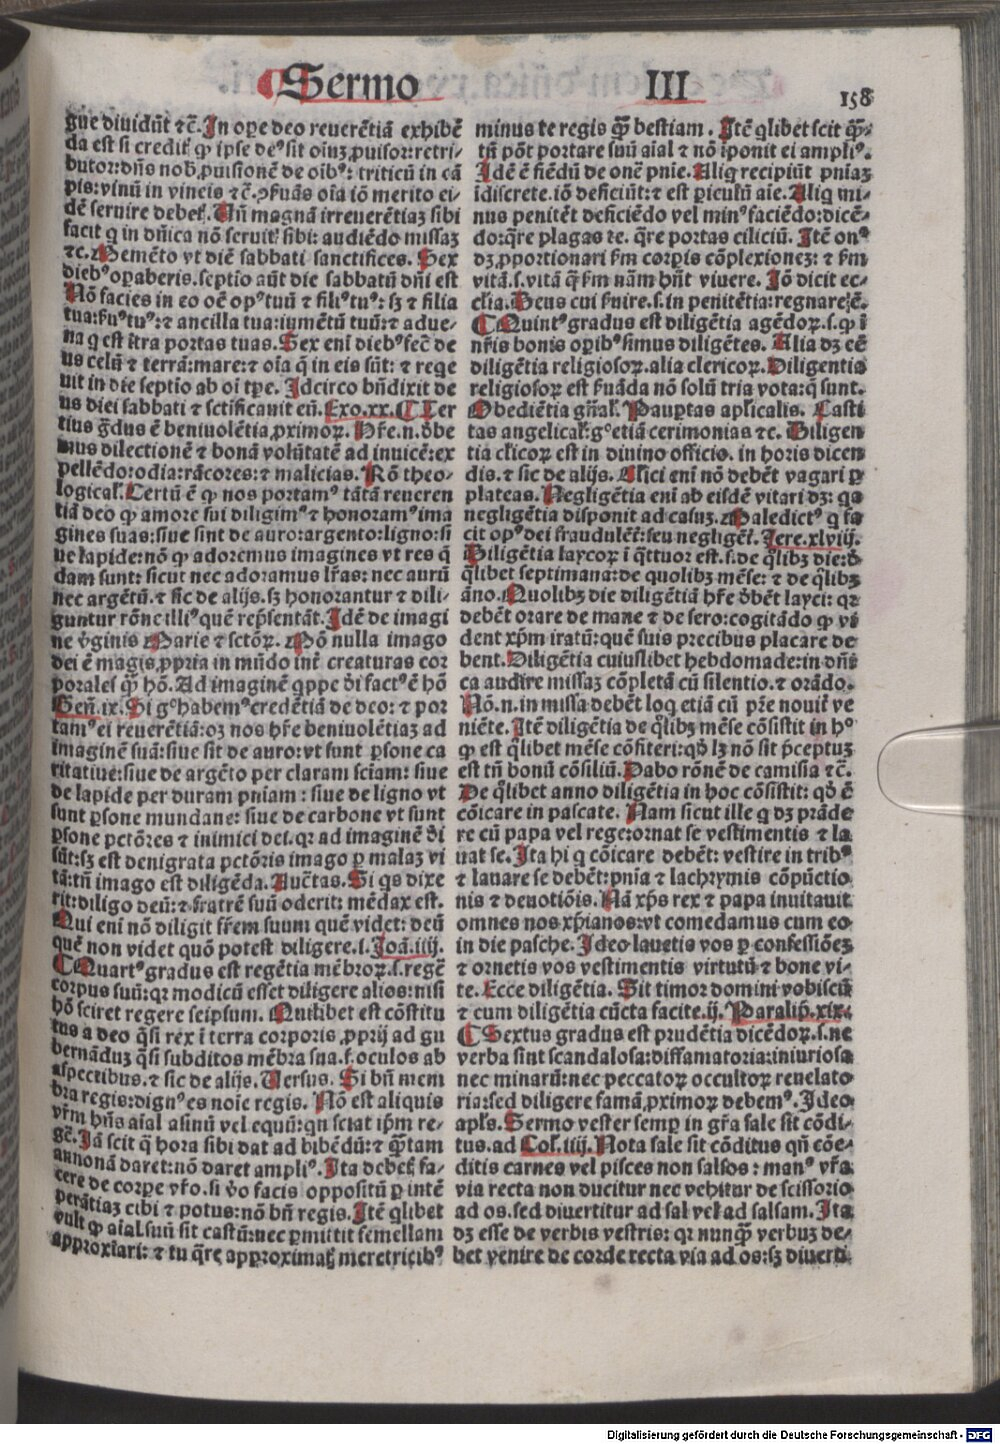 Sermo III 158
gue diuidūt ⁊c̄. In oꝑe deo reuerētiā exhibē
da est si credit̄ ꝙ ipse deꝰ sit oīuꝫ ꝓuisor: retri-
butor: dn̄s nob̄ ꝓuisionē de oībꝰ: triticū in cā
pis: vinū in vineis ⁊c̄. ꝯẜuās oīa iō merito ei-
dē seruire debet̄. Un̄ magnā irreuerētiaꝫ sibi
facit q in dn̄ica nō seruit̄ sibi: audiēdo missaꝫ
⁊c. Memēto vt diē sabbati sanctifices. Sex
diebꝰ oꝑaberis. septīo aūt die sabbatū dn̄i est
Nō facies in eo oē opꝰ tuū ⁊ filiꝰ tuꝰ: sꝫ ⁊ filia
tua: ẜuꝰ tuꝰ: ⁊ ancilla tua: iumētū tuū: ⁊ adue-
na q est ītra portas tuas. Sex enī diebꝰ fec̄ de
us celū ⁊ terrā: mare: ⁊ oīa q̄ in eis sūt: ⁊ requie
uit in die septīo ab oī tꝑe. Idcirco bn̄dixit de
us diei sabbati ⁊ sctificauit eū. Exo.xx. Ter
tius g̅dus ē beniuolētia ꝓximoꝝ. Hr̄e.n. debe
mus dilectionē ⁊ bonā volūtatē ad inuicē: ex
pellēdo: odia: rācores: ⁊ malicias. Rō theo-
logical̄. Certū ē ꝙ nos portamꝰ tātā reueren
tiā deo ꝙ amore sui diligimꝰ ⁊ honoramꝰ ima
gines suas: siue sint de auro: argento: ligno: si
ue lapide: nō ꝙ adoremus imagines vt res q̄
dam sunt: sicut nec adoramus lr̄as: nec aurū
nec argētū. ⁊ sic de alijs. sꝫ honorantur ⁊ dili-
guntur rōne illiꝰ quē rep̄sentāt. Idē de imagi
ne v̄ginis Marie ⁊ sctōꝝ. Mō nulla imago
dei ē magis ꝓpria in mūdo int̄ creaturas cor
porales q̄ꝫ hō. Ad imaginē q̄ppe dei factꝰ ē hō
Gen̄.ix. Si gͦ habemꝰ credētiā de deo: ⁊ por
tamꝰ ei reuerētiā: oꝫ nos hr̄e beniuolētiaꝫ ad
imaginē suā: siue sit de auro: vt sunt ꝑsone ca
ritatiue: siue de argēto per claram sciam: siue
de lapide per duram pniam: siue de ligno vt
sunt ꝑsone mundane: siue de carbone vt sunt
ꝑsone pctōres ⁊ inimici dei. qr ad imaginē dei
sūt: sꝫ est denigrata pctōris imago ꝑ malaꝫ vi
tā: tn̄ imago est diligēda. Auct̄as. Si qs dixe
rit: diligo deū: ⁊ fratrē suū oderit: mēdax est.
Qui eni nō diligit fr̄em suum quē videt: deū
quē non videt quō potest diligere. i. Joā.iiij.
Quartꝰ gradus est regētia mēbroꝝ. s. regē
corpus suū: qr modicū esset diligere alios: nisi
hō sciret regere seipsum. Quilibet est cōstitu
tus a deo q̄si rex ī terra corporis ꝓprij ad gu
bernāduꝫ q̄si subditos mēbra sua. s. oculos ab
aspectibus. ⁊ sic de alijs. Versus. Si bn̄ mem
bra regis: dignꝰ es noīe regis. Nō est aliquis
vr̄m hn̄s aīal asinū vel equū: qn sciat ip̄m re-
ge̅. Iā scit q̄ hora sibi dat ad bibēdū: ⁊ q̄ꝫtam
annonā daret: nō daret ampliꝰ. Ita debet̄ fa-
cere de corꝑe vr̄o. si v̄o facis oppositū ꝑ intē
perātiaꝫ cibi ⁊ potus: nō bn̄ regis. Itē qlibet
vult ꝙ aīal suū sit castū: nec ꝑmittit femellam
approxīari: ⁊ tu q̄re approximat̄ meretricibꝰ
minus te regis q̄ꝫ bestiam. Itē qlibet scit q̄ꝫ-
tū pōt portare suū aīal ⁊ nō īponit ei ampliꝰ.
Idē ē fiēdū de onē pnīe. Aliq recipiūt pniaꝫ
īdiscrete. iō deficiūt: ⁊ est piculū aīe. Aliq mi-
nus penitēt deficiēdo vel minꝰ faciēdo: dicē-
do: q̄re plagas te. q̄re portas ciliciū. Itē onꝰ
dꝫ ꝓportionari ẜm corpis cōplexioneꝫ: ⁊ ẜm
vitā. s. vitā q̄ ẜm nām hn̄t viuere. Iō dicit ec-
clīa. Deus cui ẜuire. s. in penitētia: regnare ē.
Quintꝰ gradus est diligētia agēdoꝝ. s. ꝙ ī
nr̄is bonis opibꝰ simus diligētes. Alia dꝫ eē
diligētia religiosoꝝ. alia clericoꝝ. Diligentia
religiosoꝝ est ẜuāda nō solū tria vota: q̄ sunt.
Obediētia gn̄al̄. Pauꝑtas apl̄icalis. Casti
tas angelical̄: gͦ etiā cerimonias ⁊c. Diligen
tia cl̄icoꝝ est in diuino officio. in horis dicen
dis. ⁊ sic de alijs. Usici enī nō debēt vagari ꝑ
plateas. Negligētia enī ab eisdē vitari dꝫ: qa
negligētia disponit ad casuꝫ. Maledictꝰ q fa
cit opꝰ dei fraudulēt̄: seu negligēt̄. Jere.xlviij.
Diligētia laycoꝝ ī q̄ttuor est. s. de q̄libꝫ die: de
q̄libet septimana: de quolibꝫ mēse: ⁊ de q̄libꝫ
āno. Quolibꝫ die diligētiā hr̄e debēt layci: qr
debēt orare de mane ⁊ de sero: cogitādo ꝙ vi
dent xp̄m iratū: quē suis precibus placare de
bent. Diligētia cuiuslibet hebdomade: in dn̄i
ca audire missaꝫ cōpletā cū silentio. ⁊ orādo.
Nō. n. in missa debēt loq etiā cū pr̄e nouit̄ ve
niēte. Itē diligētia de q̄libꝫ mēse cōsistit in hͦ
ꝙ est q̄libet mēse cōfiteri: qd̄ lꝫ nō sit p̄ceptuꝫ
est tn̄ bonū cōsiliū. Dabo rōnē de camisia ⁊c̄.
De q̄libet anno diligētia in hoc cōsistit: qd̄ ē
cōicare in pascate. Nam sicut ille q dꝫ prāde
re cū papa vel rege: ornat se vestimentis ⁊ la
uat se. Ita hi q cōicare debēt: vestire in tribꝰ
⁊ lauare se debēt: pnīa ⁊ lachrymis cōpūctio
nis ⁊ deuotiōis. Nā xp̄s rex ⁊ papa inuitauit
omnes nos xp̄ianos: vt comedamus cum eo
in die pasche. Ideo lauetis vos ꝑ confessiōeꝫ
⁊ ornetis vos vestimentis virtutū ⁊ bone vi-
te. Ecce diligētia. Sit timor domini vobiscū
⁊ cum diligētia cūcta facite. ij. Paralip̄.xix.
Sextus gradus est prudētia dicēdoꝝ. s. ne
verba sint scandalosa: diffamatoria: iniuriosa
nec minarū: nec peccatoꝝ occultoꝝ reuelato
ria: sed diligere famā ꝓximoꝝ debemꝰ. Ideo
apl̄s. Sermo vester semꝑ in gr̄a sale sit cōdi-
tus. ad Col̄.iiij. Nota sale sit cōditus qn̄ cōe-
ditis carnes vel pisces non salsos: manꝰ vr̄a
via recta non ducitur nec vehitur de scissorio
ad os. sed diuertitur ad sal vel ad salsam. Ita
dꝫ esse de verbis vestris: qr nunq̄ꝫ verbuꝫ de-
bet venire de corde recta via ad os: sꝫ diuerti
Digitalisierung gefördert durch die Deutsche Forschungsgemeinschaft - DFG